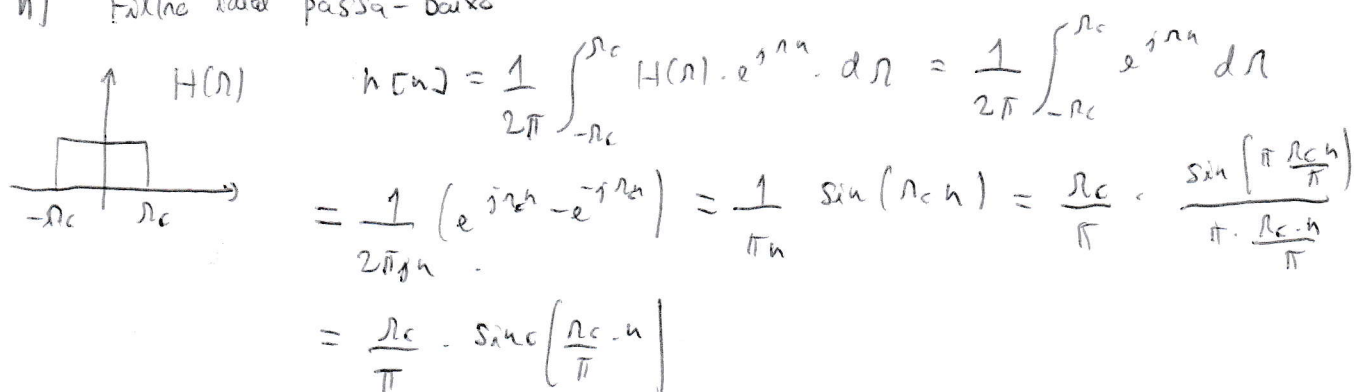 passa-baixo
H(Ω)
-Ωc Ωc
h[n] = 1/2π ∫_{-Ωc}^{Ωc} H(Ω) . e^{jΩn} . dΩ = 1/2π ∫_{-Ωc}^{Ωc} e^{jΩn} dΩ
= 1/2πjn (e^{jΩcn} - e^{-jΩcn}) = 1/πn sin(Ωc n) = Ωc/π . sin(π Ωc n/π) / π . Ωc . n/π
= Ωc/π . sinc(Ωc/π . n)